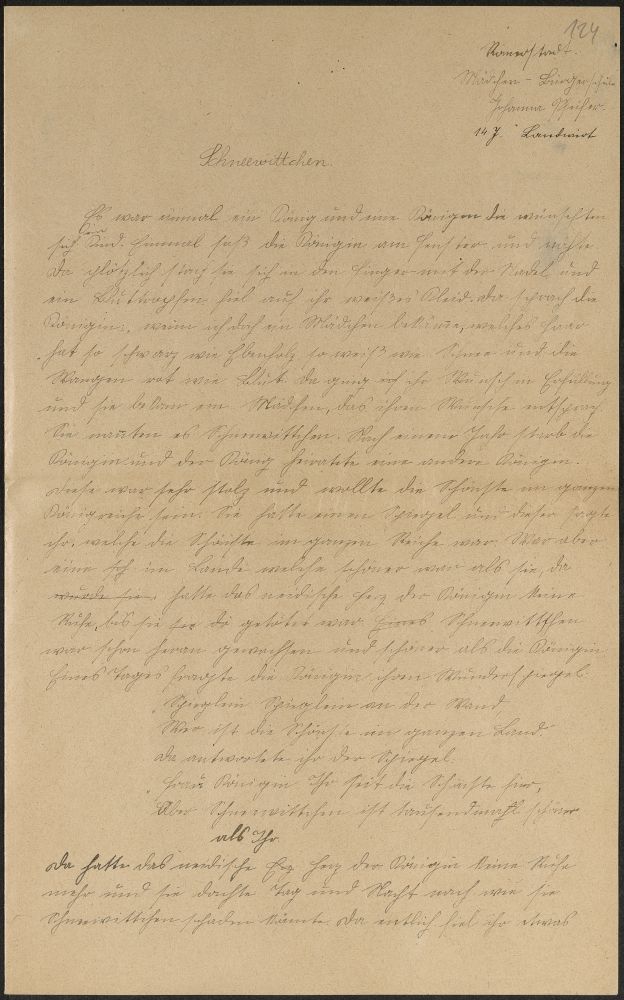 124
Römerstadt.
Mädchen - Bürgerschule
Johanna
14 J. Landwirt
Schneewittchen.
Es war einmal ein König und eine Königin die wünschten
sich ein Kind. Einmal saß die Königin am Fenster und nähte.
Da plötzlich stach sie sich in den Finger mit der Nadel und
ein Bluttropfen fiel auf ihr weißes Kleid. da sprach die
Königin, wenn ich doch ein Mädchen bekäme, welches Haar
hat so schwarz wie Ebenholz so weiß wie Schnee und die
Wangen rot wie Blut. Da ging ihr Wunsch in Erfüllung
und sie bekam ein Mädchen, das ihrem Wunsche entsprach.
Sie nannten es Schneewittchen. Nach einem Jahr starb die
Königin und der König heiratete eine andere Königin.
Diese war sehr stolz und wollte die Schönste im ganzen
Königreiche sein. Sie hatte einen Spiegel und dieser sagte
ihr, welche die Schönste im ganzen Reiche war. War aber
eine im Lande welche schöner war als sie, da
wurde sie hatte das neidische Herz der Königin keine
Ruhe, bis sie getötet war. Schneewittchen
war schon heran gewachsen und schöner als die Königin
Eines Tages fragte die Königin ihren Wunderspiegel:
„Spieglein Spieglein an der Wand
Wer ist die Schönste im ganzen Land."
da antwortete ihr der Spiegel:
„Frau Königin Ihr seit die Schönste hier,
Aber Schneewittchen ist tausendmahl schöner
als Ihr
Da hatte das neidische Herz der Königin keine Ruhe
mehr und sie dachte Tag und Nacht nach wie sie
Schneewittchen schaden könnte. Da entlich fiel ihr etwas